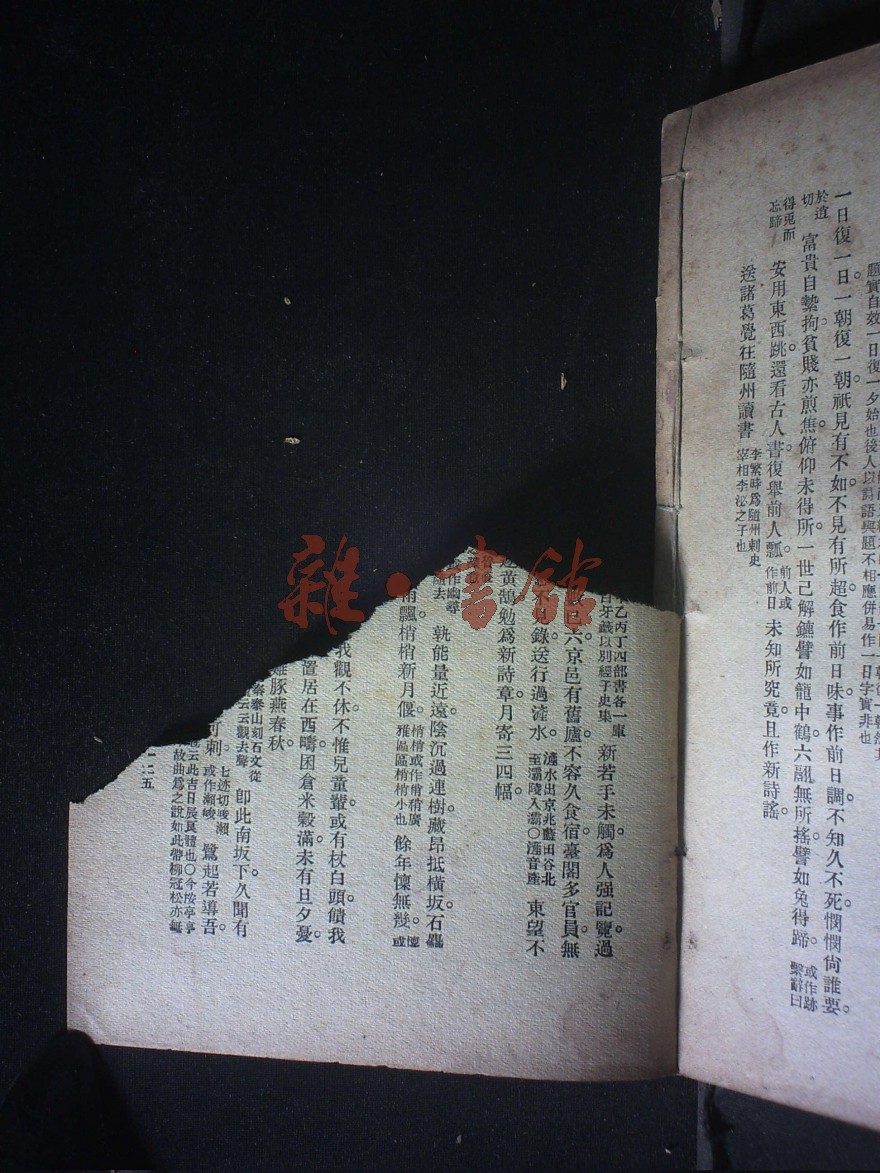 題實自效一日復一夕始也後人以詩語與題不相應併易作一日字實非也
一日復一日。一朝復一朝。祇見有不如。不見有所超。食作前日味。事作前日調。不知久不死。憫憫尙誰要。
於逍切 富貴自縶拘。貧賤亦煎焦。俯仰未得所。一世已解鑣。譬如籠中鶴。六翮無所搖。譬如兔得蹄。或作跡繫辭曰
得兎而忘蹄 安用東西跳。還看古人書。復舉前人瓢。前人或作前日 未知所究竟。且作新詩謠。
送諸葛覺往隨州讀書 李繁時爲隨州刺史宰相李泌之子也
乙丙丁四部書各一庫牙籤以別經子史集 新若手未觸。爲人强記覽。過
六。京邑有舊廬。不容久食宿。臺閣多官員。無
錄。送行過滻水。滻水出京兆藍田谷北至灞陵入灞○滻音產 東望不
黃鵠。勉爲新詩章。月寄三四幅。
作幽尋去 孰能量近遠。陰沉過連樹。藏昂抵橫坂。石麤
雨飄。梢梢新月偃。梢梢或作前稍廣雅區區梢梢小也 餘年懍無幾。懍或
我觀不休。不惟兒童輩。或有杖白頭。饋我
置居在西疇。囷倉米穀滿。未有旦夕憂。
雞豚燕春秋。
泰山刻石文從云云觀去聲 卽此南坂下。久聞有
可刺。七迹切畯瀨或作瀨峻 鷺起若導吾。
云此吉日辰良體也○今按亭亭故曲爲之說如此帶柳冠松亦無
二五
雜·書館